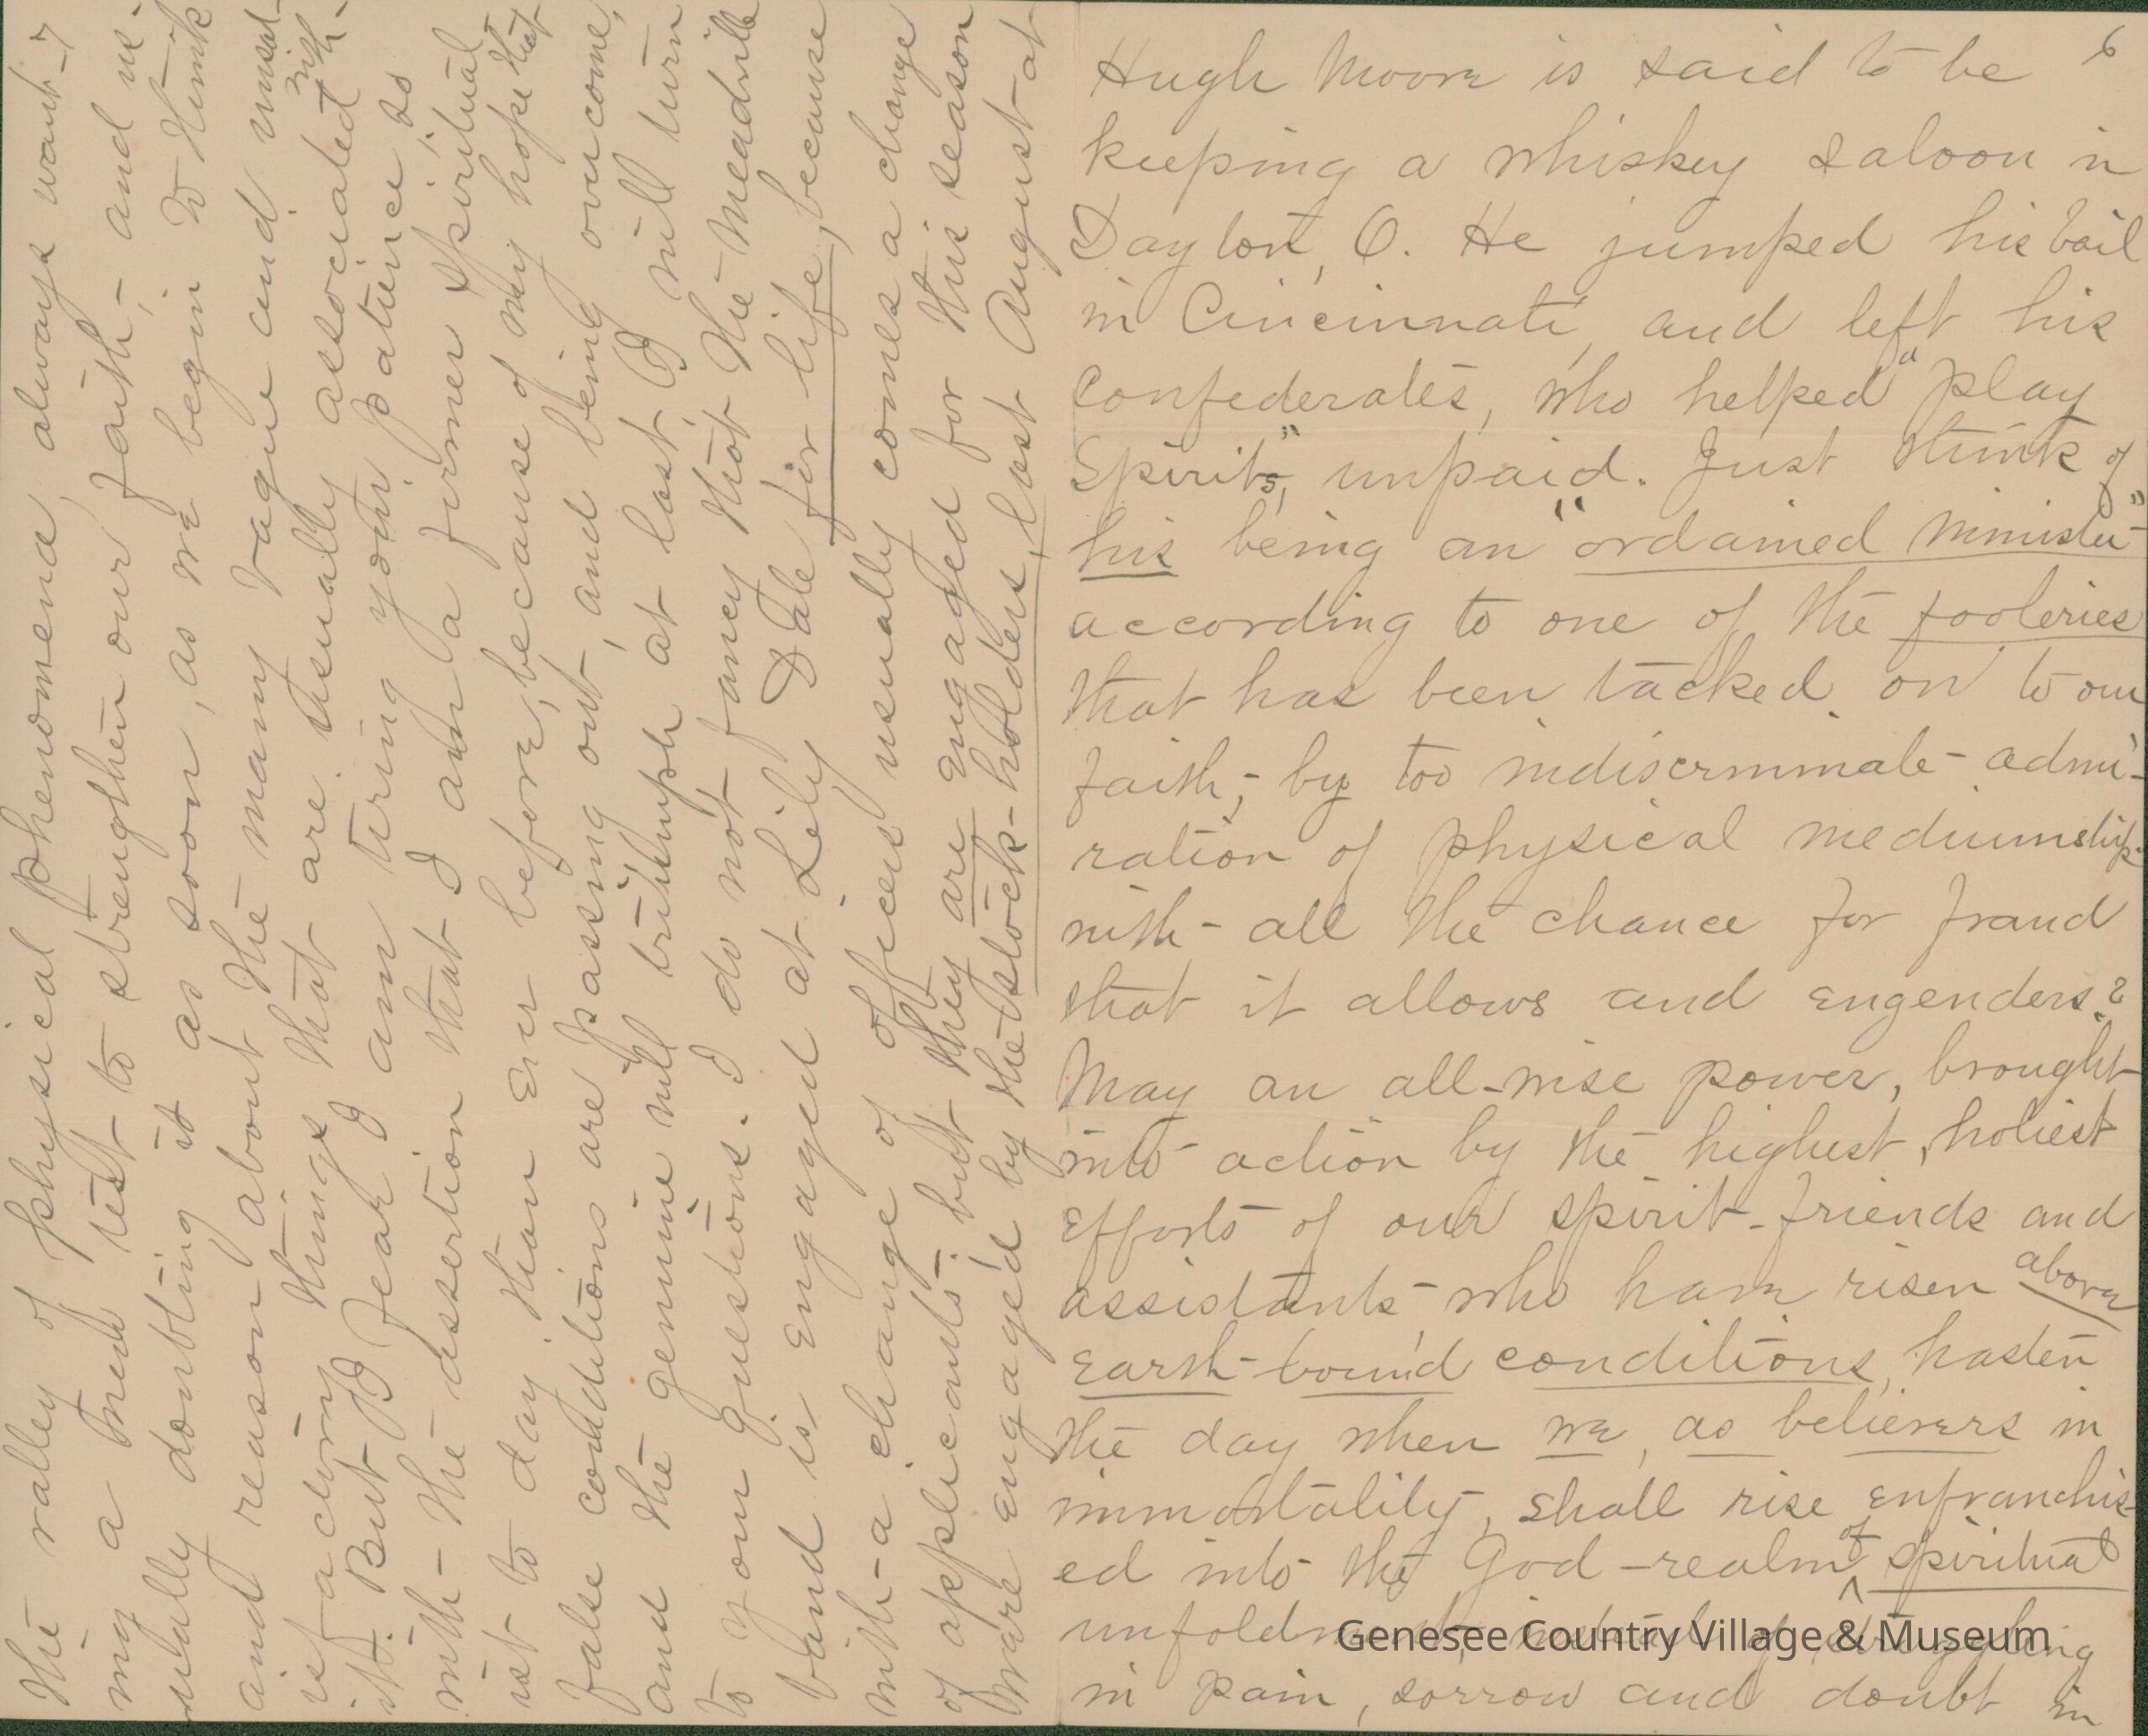 6
Hugh Moore is said to be
keeping a whiskey saloon in
Dayton, O. He jumped his bail
in Cincinnati, and left his
confederates, who helped "play
spirits," unpaid. Just think of
his being an "ordained minister"
according to one of the fooleries
that has been tacked on to our
faith,- by too indiscriminate admi-
ration of physical mediumship.
with all the chance for fraud
that it allows and engenders?
May an all-wise power, brought
into action by the highest, holiest
efforts of our spirit-friends and
assistants who have risen above
earth-bound conditions, hasten
the day when we, as believers in
immortality, shall rise enfranchis-
ed into the God-realm of spiritual
unfoldment, instead of, struggling
in pain, sorrow and doubt in
7
the valley of physical phenomena, always want-
ing a new test to strengthen our faith,- and us-
ually doubting it as soon, as we begin to think
and reason about the many vague and unsat-
isfactory things that are usually associated with
it. But I fear I am tiring your patience; so
with the assertion that I am a firmer spiritual-
ist to day, than ever before, because of my hope that
false conditions are passing out, and being overcome,
and the genuine will triumph at last, I will turn
to your questions. I do not fancy that the Meadville
band is engaged at Lily Dale for life, because
with a change of officers usually comes a change
of applicants: but they are engaged for this season
were engaged by the stock-holders, last August at
Genesee Country Village & Museum